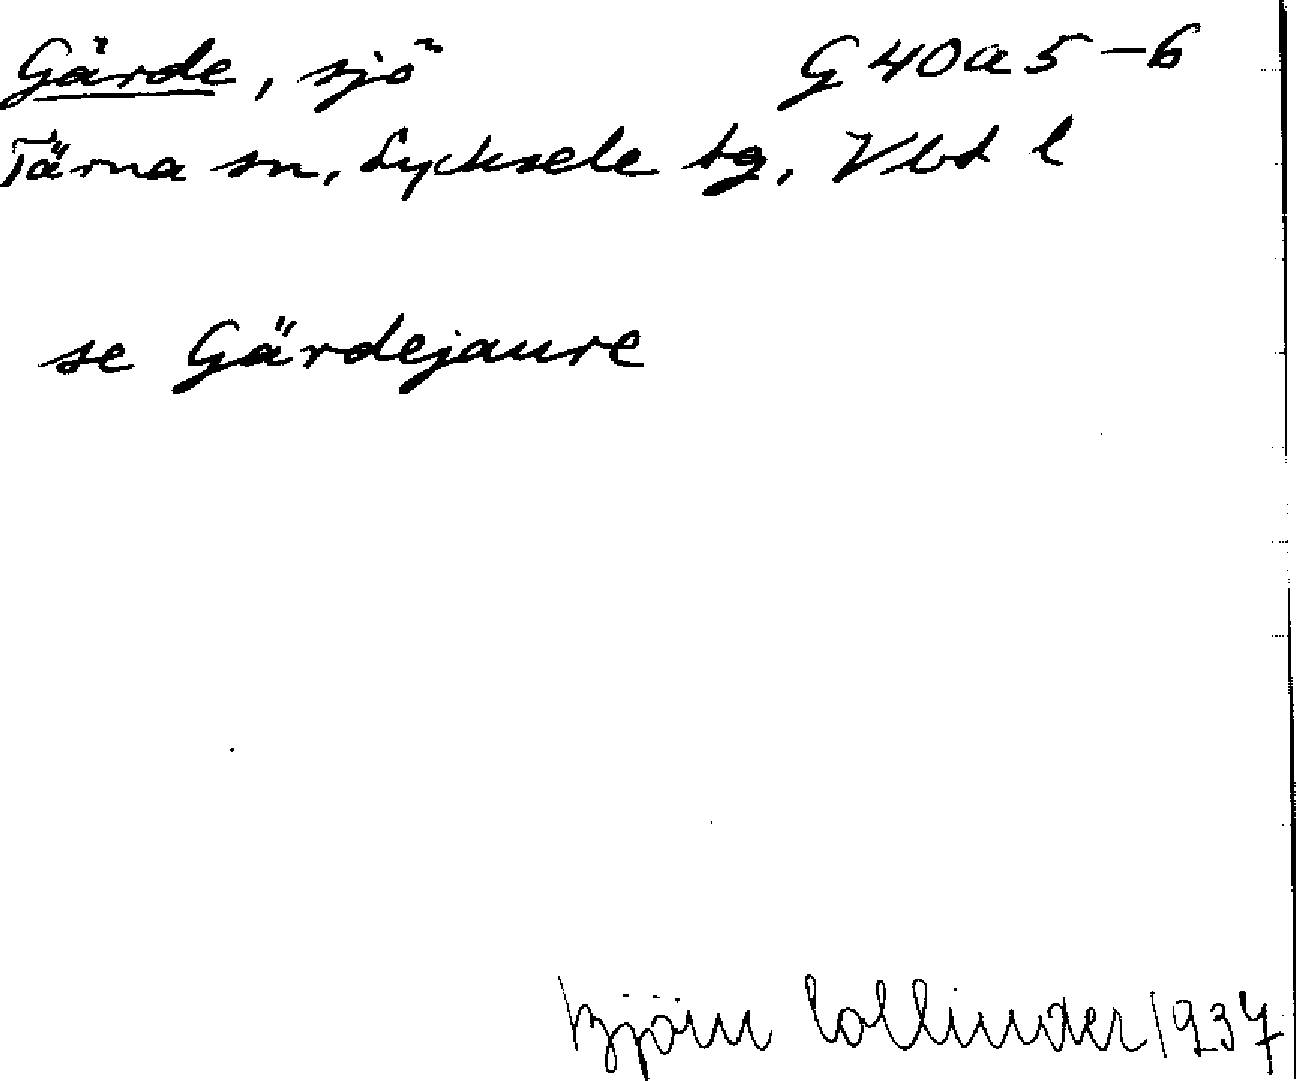 Gärde, sjö G 40 a 5-6
Tärna sn, Lycksele tg, Vbt l
se Gärdejaure
Björn Collinder 1937